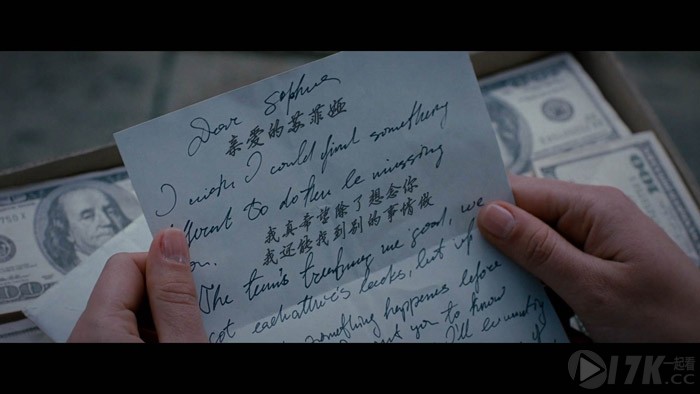 Dear Sophia
亲爱的苏菲娅
I wish I could find something
different to do then be missing
you.
我真希望除了想念你
我还能找到别的事情做
The team's treating me good, we
got eachother's backs, but if
something happens before
want you to know
I'll be
100
17K一起看
.CC